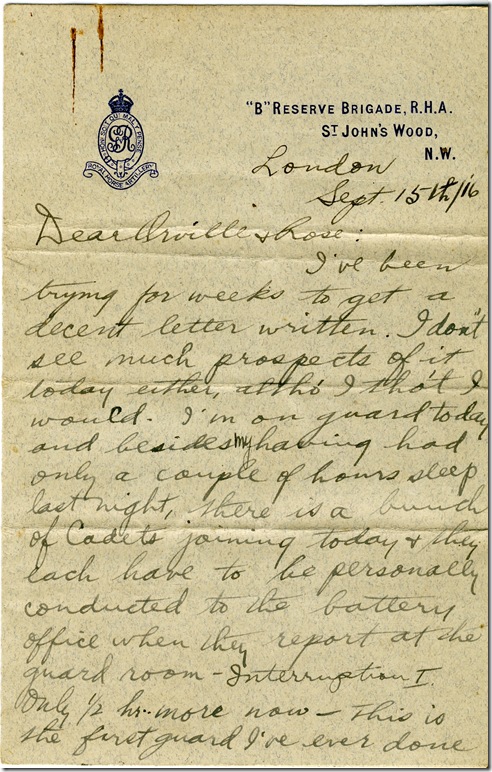 HONI SOIT QUI MAL Y PENSE
GR
ROYAL HORSE ARTILLERY
"B" RESERVE BRIGADE, R.H.A.
ST JOHN'S WOOD,
N.W.
London
Sept. 15th/16
Dear Orville & Rose:
I've been
trying for weeks to get a
decent letter written. I don't
see much prospects of it
today either, altho' I tho't I
would. I'm on guard today
and besides my having had
only a couple of hours sleep
last night, there is a bunch
of Cadets joining today & they
each have to be personally
conducted to the battery
office when they report at the
guard room – Interruption I.
Only ½ hr. more now – This is
the first guard I've ever done